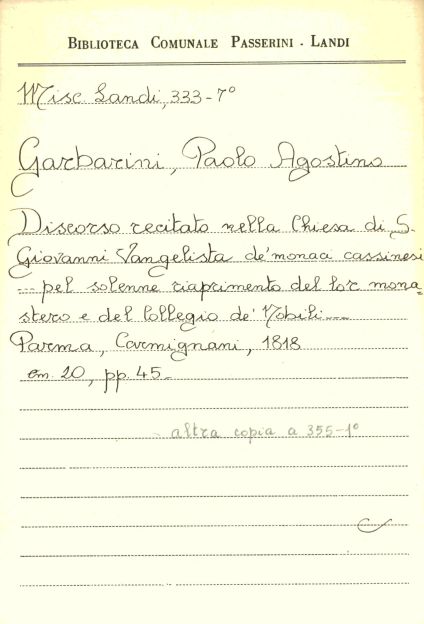 BIBLIOTECA COMUNALE PASSERINI - LANDI
Misc. Landi, 333-7°
Garbarini, Paolo Agostino
Discorso recitato nella Chiesa di S.
Giovanni Vangelista de' monaci cassinesi
... pel solenne riaprimento del lor mona=
stero e del Collegio de' Nobili...
Parma, Carmignani, 1818
cm. 20, pp. 45.
altra copia a 355-1°